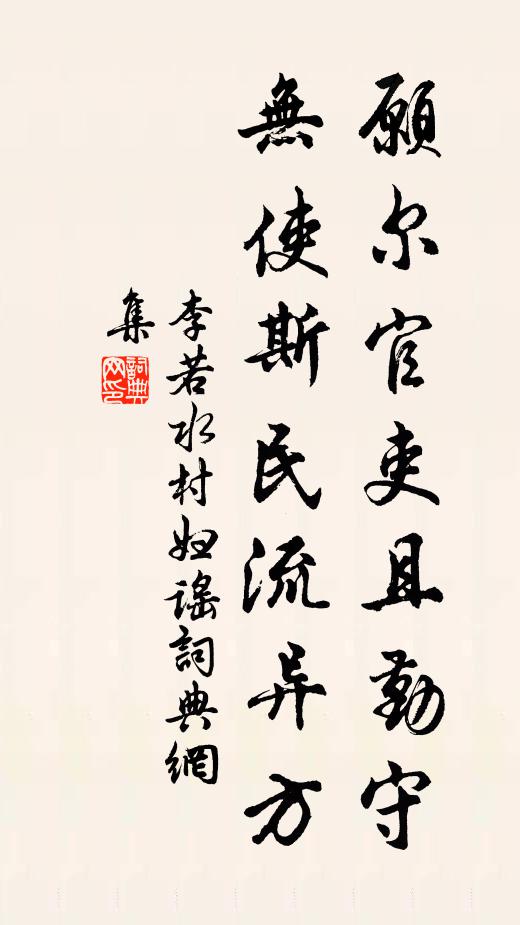 願尔官吏且勤守
無使斯民流异方
李若水村妇謠詞典網
集
詞典网印